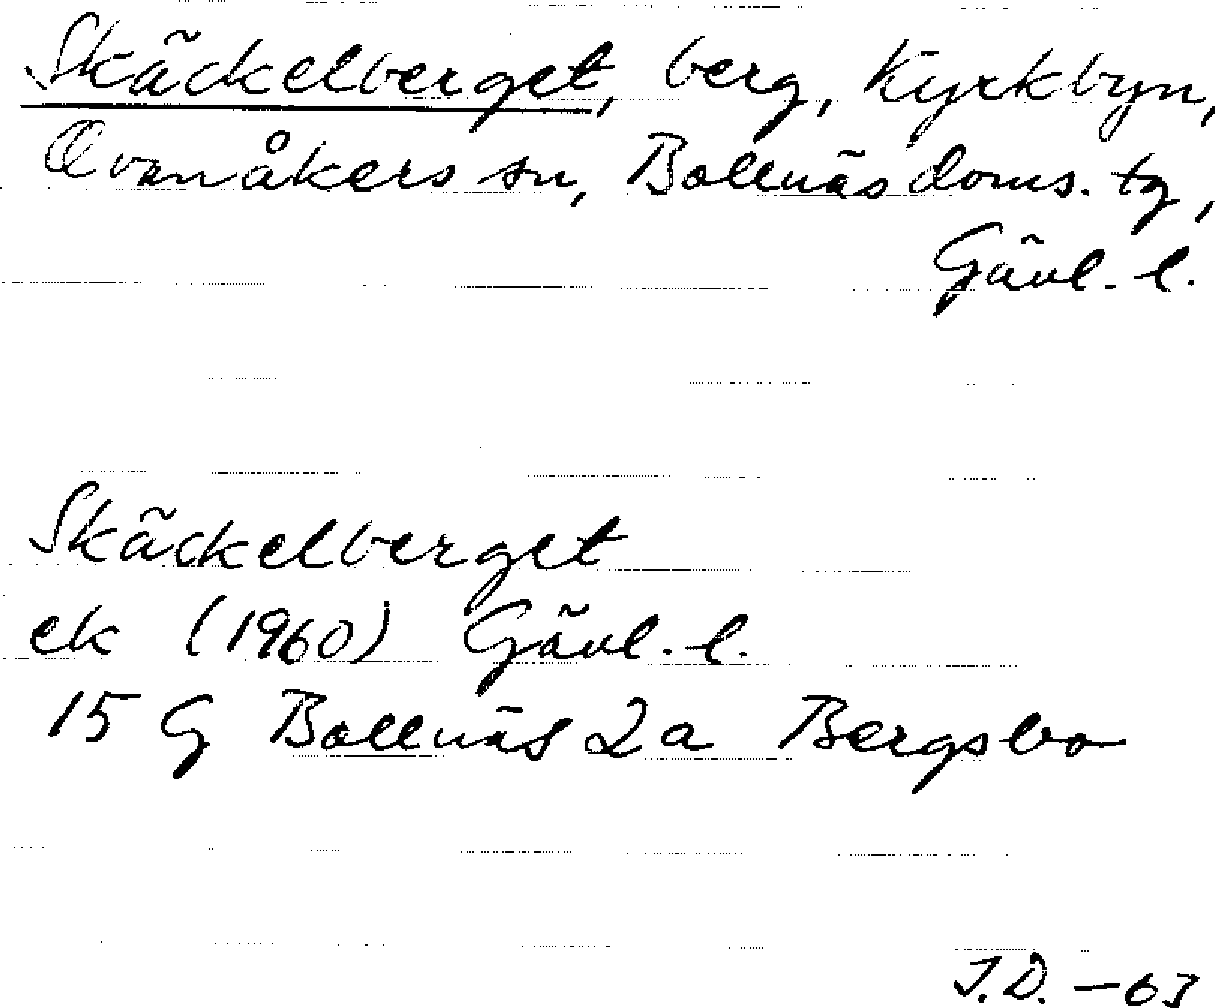 Skäckelberget, berg, Kyrkbyn,
Ovanåkers sn, Bollnäs doms. tg,
Gävl. l.
Skäckelberget
ek (1960) Gävl. l.
15 G Bollnäs 2a Bergsbo
J.D. -63